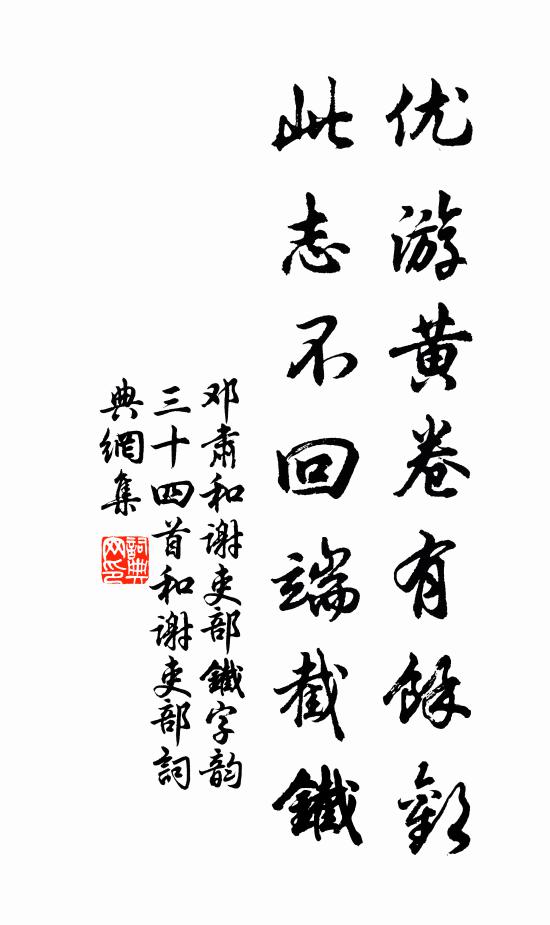 优游黄卷有餘歡
此志不回端截鐵
邓肃和谢吏部鐵字韵
三十四首和谢吏部詞
典網集
詞典
网印